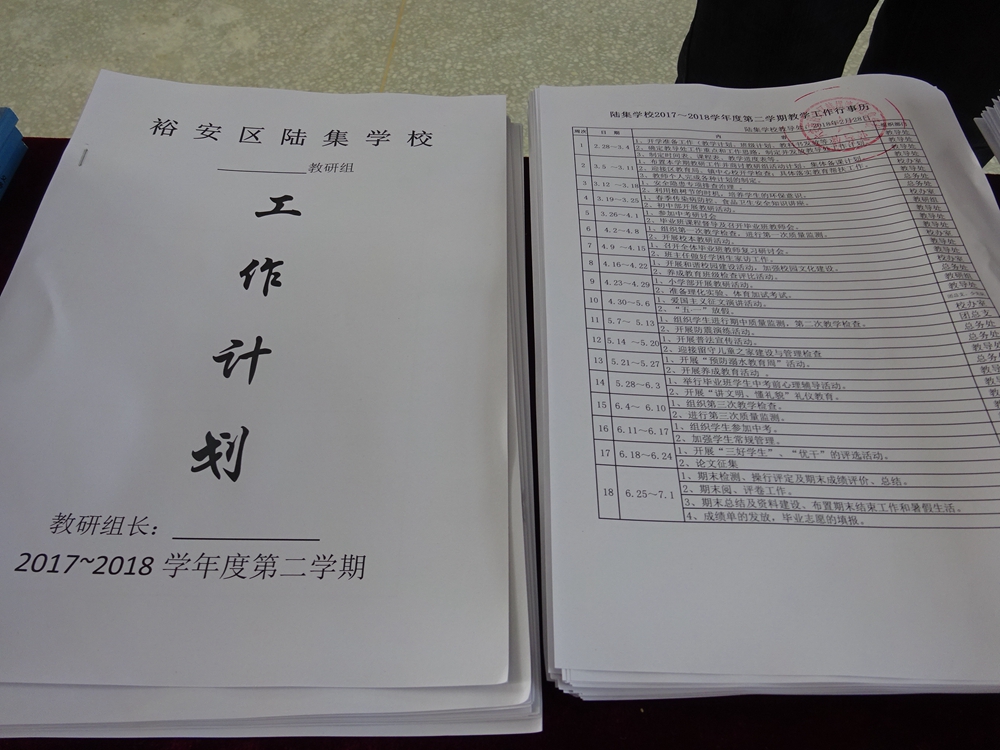 裕安区陆集学校
教研组
工
作
计
划
教研组长：
2017~2018 学年度第二学期
陆集学校2017～2018学年度第二学期教学工作行事历
陆集学校教导处 2018年2月28日
周次 日 期 内
1 2.28—3.4 1、开学准备工作（教学计划、班级计划、教
教导处
3、制定时间表、课程表、教学进度表等。
2 3.5 —3.11 1、布置本学期教研工作并商讨教研组活动计划，集体备课计划。
教导处
3、教师个人完成各种计划的制定。
3 3.12 —3.18 1、安全隐患专项排查治理
总务处
2、利用植树节的时机，培养学生的环保意识。
校办室
4 3.19～3.25 1、春季传染病防控、食品卫生安全知识讲座。
2、初中部开展教研活动。
教研组
5 3.26～4.1 1、参加中考研讨会
教导处
2、毕业班课程督导及召开毕业班教师会。
教导处
6 4.2～4.8 1、组织第一次教学检查，进行第一次质量监测。
教导处
2、开展校本教研活动。
7 4.9 ～4.15 1、召开全体毕业班教师复习研讨会。
2、班主任做好学困生家访工作。
8 4.16～4.22 1、开展和谐校园建设活动，加强校园文化建设。
2、养成教育班级检查评比活动。
9 4.23～4.29 1、小学部开展教研活动。
2、准备理化实验、体育加试考试。
10 4.30～5.6 1、爱国主义征文演讲活动。
2、“五一”放假。
校办室
11 5.7～ 5.13 1、组织学生进行期中质量监测，第二次教学检查。
团总支
2、开展防震演练活动。
总务处
12 5.14 ～5.20 1、开展普法宣传活动。
总务处
2、迎接留守儿童之家建设与管理检查
13 5.21～5.27 1、开展“预防溺水教育周”活动。
2、开展养成教育活动 。
14 5.28～6.3 1、举行毕业班学生中考前心理辅导活动。
2、开展“讲文明、懂礼貌”礼仪教育。
15 6.4～ 6.10 1、组织第三次教学检查。
2、进行第三次质量监测。
16 6.11～6.17 1、组织学生参加中考。
2、加强学生常规管理。
17 6.18～6.24 1、开展“三好学生”、“优干”的评选活动。
2、论文征集
18 6.25～7.1 1、期末检测、操行评定及期末成绩评价、总结。
2、期末阅、评卷工作。
3、期末总结及资料建设、布置期末结束工作和暑假生活。
4、成绩单的发放、毕业志愿的填报。